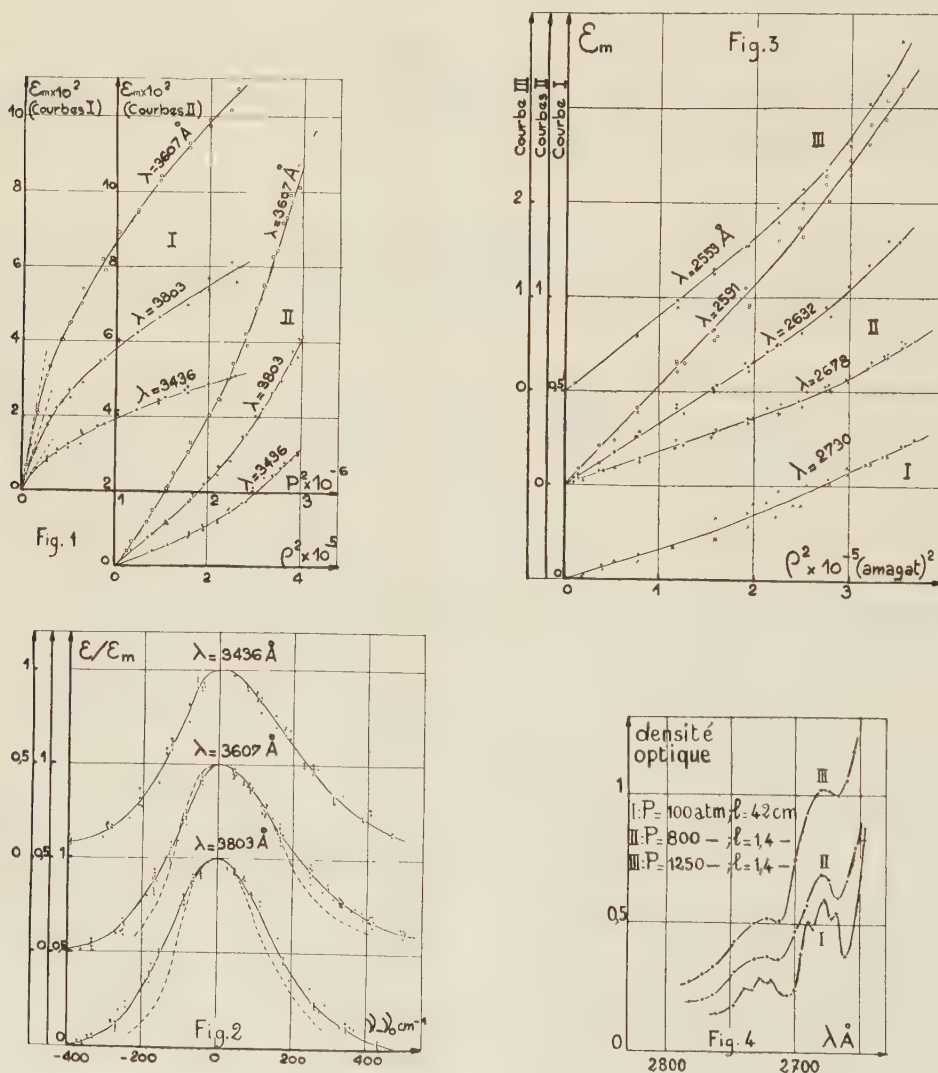 Ɛm×10²
(Courbes I)
Ɛm×10²
(Courbes II)
10
8
6
4
2
0
10
8
6
4
2
0
λ=3607Å
I
λ=3803
λ=3436
λ=3607Å
II
λ=3803
λ=3436
0
1
2
3
P²×10⁻⁶
0
2
4
ρ²×10⁻⁵
Fig. 1
Ɛm
Fig. 3
Courbe III
Courbes II
Courbe I
2
1
0
1
0
0,5
0
III
λ=2553 Å
λ=2591
λ=2632
II
λ=2678
λ=2730
I
0
1
2
3
ρ²×10⁻⁵(amagat)²
Ɛ/Ɛm
λ=3436Å
λ=3607Å
λ=3803Å
1
0,5
1
0
0,5
1
0
0,5
0
-400
-200
0
200
400
ν-ν₀ cm⁻¹
Fig. 2
densité
optique
I:P=100atm;ℓ=42cm
II:P=800—;ℓ=1,4—
III:P=1250—;ℓ=1,4—
1
0,5
0
III
II
I
Fig. 4
λÅ
2800
2700